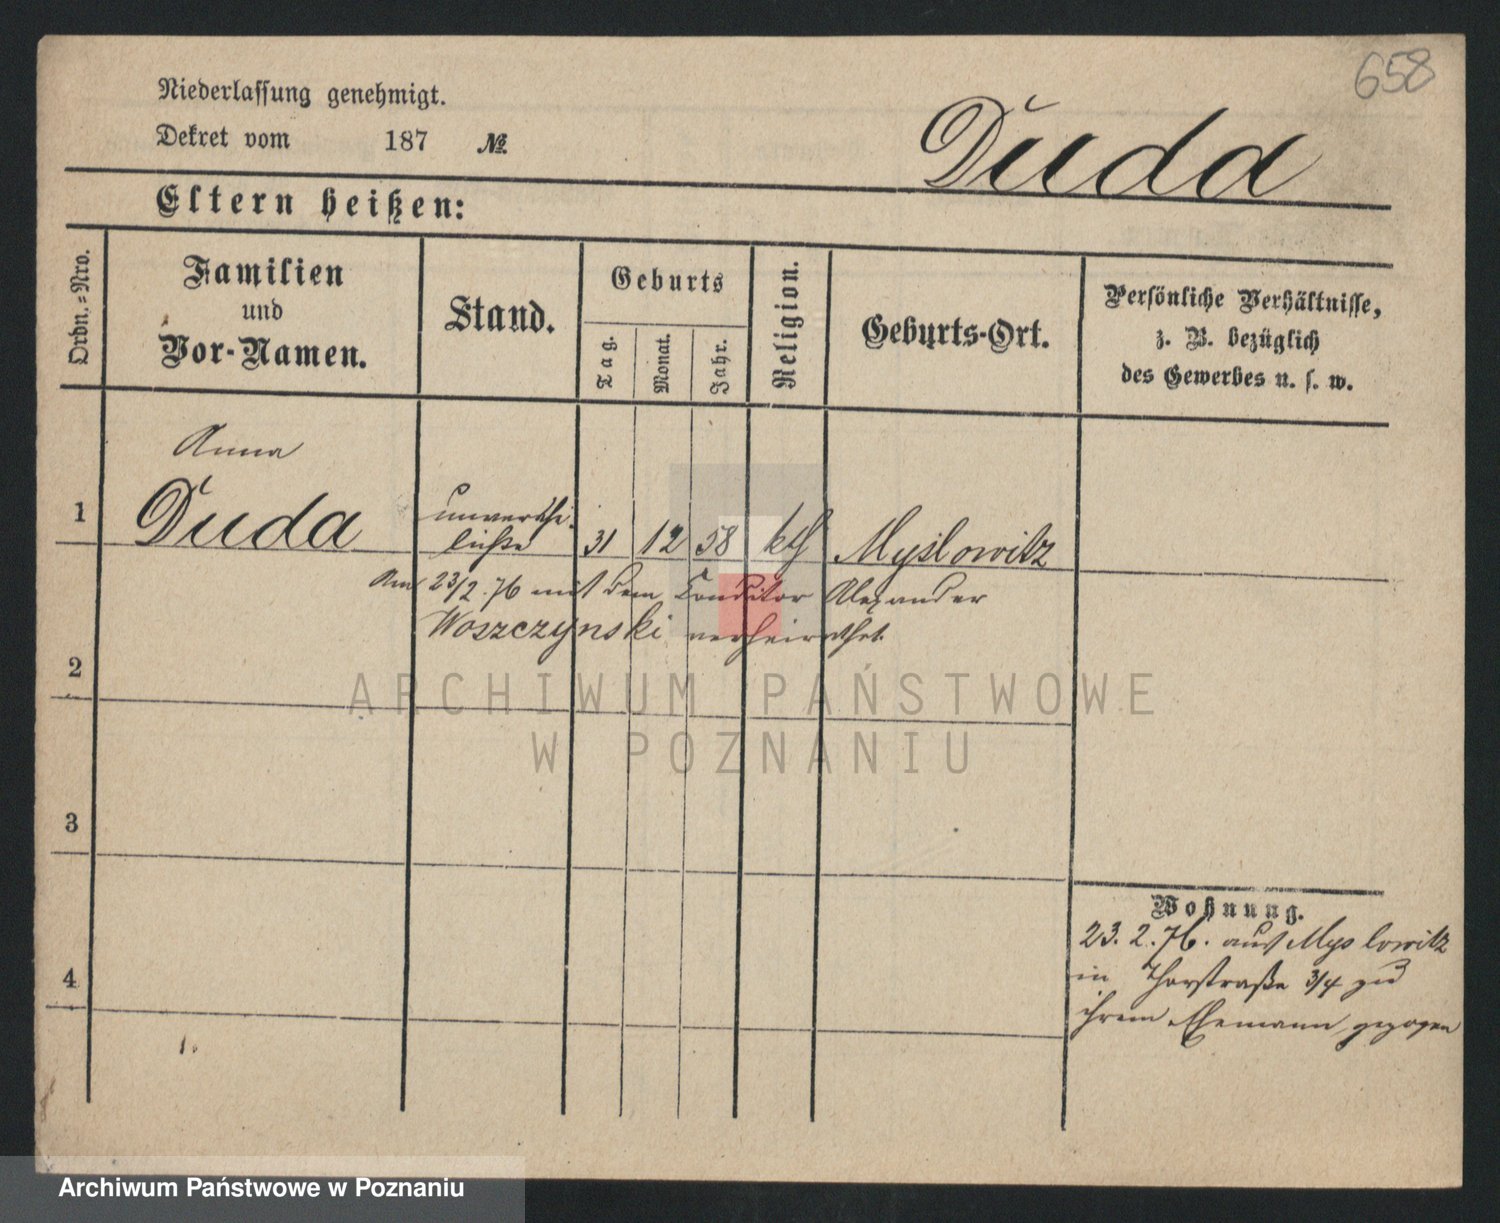 658
Niederlassung genehmigt.
Dekret vom 187 №
Duda
Eltern heißen:
Ordn.-Nro.
Familien
und
Vor-Namen.
Stand.
Geburts
Tag.
Monat.
Jahr.
Religion.
Geburts-Ort.
Persönliche Verhältnisse,
z. B. bezüglich
des Gewerbes u. s. w.
Anna
1 Duda unverehe-
lichte 31 12 58 kth Mysłowitz
Am 23/2.76 mit dem Conditor Alexander
Woszczynski verheirathet.
2
ARCHIWUM PAŃSTWOWE
W POZNANIU
3
Wohnung.
23. 2. 76. aus Myslowitz
in Thorstraße 3/4 zu
ihrem Ehemann gezogen
4
1.
Archiwum Państwowe w Poznaniu